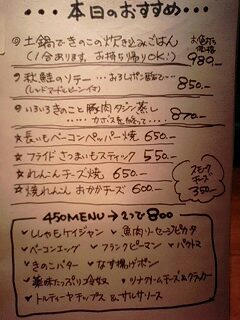 ...本日のおすすめ...
◎土鍋できのこの炊き込みごはん
(1合あります お持ち帰りOK!) 980.-
◎秋鮭のソテー
850.-
◎いろいろきのこと豚肉タジン蒸し
870.-
★長いもベーコンペッパー焼 650.-
★フライドさつまいもスティック 550.-
★れんこんチーズ焼 650.-
★焼れんこん おかかチーズ 600.-
スモークチーズ 350.-
450MENU→2つで800
✓ししゃもケイジャン ✓魚肉ソーセージピカタ
✓ベーコンエッグ ✓フランクピーマン ✓パクトマ
✓きのこバター ✓なす揚げポン
✓薬味たっぷり冷奴 ✓ツナクリームチーズ&クラッカー
✓トルティーヤチップス&サルサソース